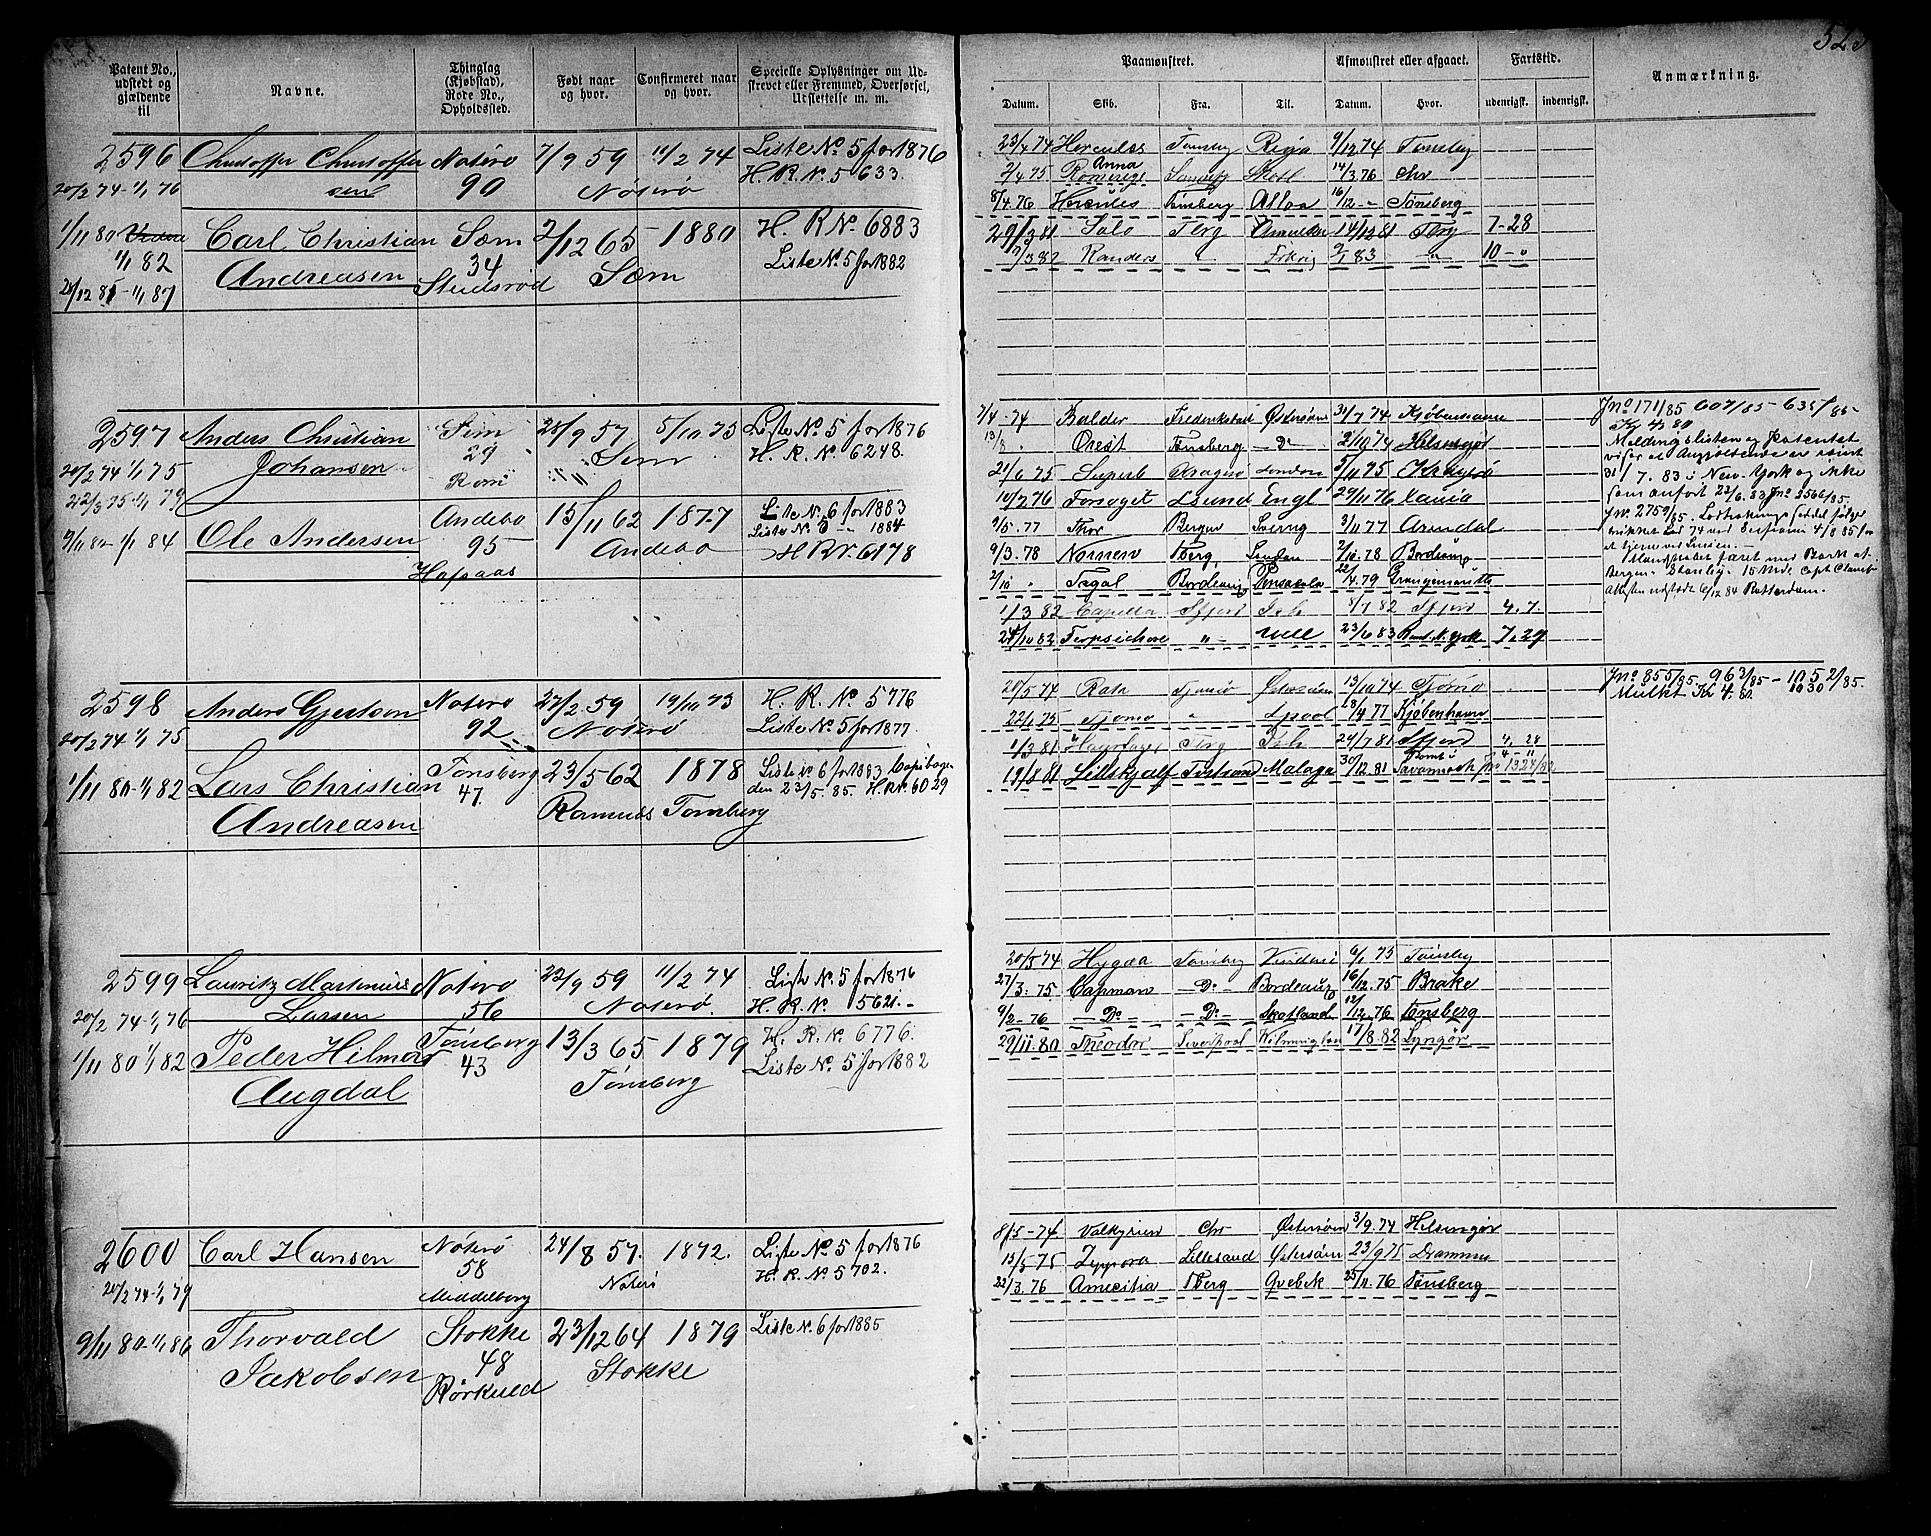 Patent No., udstedt og gjældende til
Navne.
Thinglag (Kjøbstad), Rode No., Opholdssted.
Født naar og hvor.
Confirmeret naar og hvor.
Specielle Oplysninger om Udstrevet eller Fremmed, Overførsel, Udslettelse m. m.
Paamønstret.
Afmønstret eller afgaaet.
Fartstid.
Anmærkning.
Datum. Skib. Fra. Til. Datum. Hvor. udenrigsk. indenrigsk.
2596 Christoffer Christoffer Nøterø 7/9 59 11/2 74 Liste No 5 for 1876
20/2 74-1/1 76 sen 90 Nøterø H. R. No. 5633.
1/11 80 Carl Christian Sæm 2/12 65 1880 H. R No. 6883
1/1 82 Andreasen 34 Sæm Liste No. 5 for 1882
Studsrød
23/4 74 Hercules Tønsby Riga 9/12 74 Tønsby
2/4 75 Anna Romerige 14/3 76 Chr
8/4 76 Hercules Tønsberg Alloa 16/12 - " Tønsberg
29/3 81 Salo Tbrg 14/12 81 Tbrg 7-28
7/3 82 Randers " 2/1 83 " 10 - "
2597 Anders Christian Sem 28/9 57 5/10 73 Liste No. 5 for 1876
20/2 74 1/1 75 Johansen 29 Sem H. R. No. 6248.
Romi
9/11 82-1/1 84 Ole Andersen Andebo 15/11 62 1877 Liste No. 6 for 1883
95 Andebo Liste No. 5 " 1884
Hafsaas H R No. 6178
7/4 - 74 Balder Frederikstad Østersøen 31/7 74 Kjøbenhavn
13/8 " Orest Tønsberg - Do - 2/10 74 Helsingør
21/6 75 Superb Dragsø London 5/11 75 Kragerø
10/7 76 Forsøget Lsund Engl 29/11 76 Xania
9/5. 77 Thor Bergen Sverig 3/11 77 Arendal
9/3. 78 Nornen Tberg London 2/10. 78 Bordeaux
2/10 " Fagal Bordeaux Pensacola 22/4. 79 Grangemouth
1/3 82 Capella Sfjord Ish 8/7 82 Sfjord 4. 7.
24/10 82 Terpsichore " 23/6 83 N. York 7. 29
Jno 171/85 607/85 - 635/85 -
Kr 4 80
Meldingslisten og Patentet
viser at Angjældende er rømt
31/7. 83 i New-York og ikke
som anført 23/6. 83 Jno 2566/85.
Bergen - Stanley - 15 Mdr.
Attesten udstedt 6/12 84 Rotterdam.
2598 Anders Gjertsen Nøterø 27/2 59 19/10 73 H. R. No. 5776
20/2 74 1/1 75 92 Nøterø Liste No. 5 for 1877.
1/11 80-1/1 82 Lars Christian Tønsberg 23/5 62 1878 Liste No. 6 for 1883
Andreasen 47. Ramnæs Tønsberg den 23/5. 85. H. R No. 6029
20/5 74 Rata Tjømø 13/10 74 Tjømø
22/1 75 Tjømø " Lpool 18/4 77 Kjøbenhavn
1/3 81 Haarfager Tbrg Ish 24/7 81 Sfjord 4. 28
19/8 81 Lillskjalf Malaga 30/12. 81 Savannah Jno 1324/82
Jno 855/85 963/85 - 1052/85.
Mulkt Kr 4. 80
2599 Lauritz Martinius Nøterø 22/9 59 11/2 74 Liste No. 5 for 1876
20/2 74-1/1 76 Larsen 56 Nøterø H. R. No. 5621. -
1/11 80 1/1 82 Peder Hilmar Tønsberg 13/3 65 1879 H. R. No. 6776.
Augdal 43 Tønsberg Liste No. 5 for 1882
20/5 74 Hygæa Tønsby 6/1 75 Tønsby
27/3. 75 Capman - Do - Bordeaux 16/12. 75 Brake
9/2 - 76 - Do - - Do - Skotland 12/12. 76 Tønsberg
29/11. 80 Theodor Liverpool Wilmington 17/8. 82 Lyngør
2600 Carl Hansen Nøterø 24/8 57. 1872. Liste No. 5 for 1876
20/2 74-1/1 79 58 Nøterø H. R. No. 5702.
Meddelborg
9/11 80-1/1 86 Thorvald Stokke 23/12 64 1879 Liste No. 6 for 1885
Jakobsen 48 Stokke
Rørkuld
8/5 - 74 Valkyrien Chr Østersøen 3/9. 74 Helsingør
13/5 - 75 Zippora Lillesand Østersøen 23/9 75 Drammen
22/3. 76 Amicitia Tberg Qvebek 25/11. 76 Tønsberg